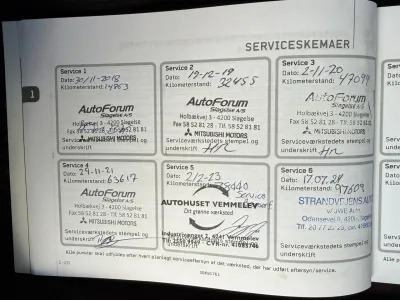 SERVICESKEMAER
1
Service 1
Dato: 30/11-2018
Kilometerstand: 14863
AutoForum
Slagelse A/S
Holbækvej 3 - 4200 Slagelse
Fax 58 52 81 28 - Tlf. 58 52 81 81
MITSUBISHI MOTORS
Serviceværkstedets stempel og
underskrift
Service 2
Dato: 19-12-19
Kilometerstand: 32455
AutoForum
Slagelse A/S
Holbækvej 3 - 4200 Slagelse
Fax 58 52 81 28 - Tlf. 58 52 81 81
MITSUBISHI MOTORS
Serviceværkstedets stempel og
underskrift
Service 3
Dato: 2-11-20
Kilometerstand: 47099
AutoForum
Slagelse A/S
Holbækvej 3 - 4200 Slagelse
Fax 58 52 81 28 - Tlf. 58 52 81 81
MITSUBISHI MOTORS
Serviceværkstedets stempel og
underskrift
Service 4
Dato: 24-11-21
Kilometerstand: 63617
AutoForum
Slagelse A/S
Holbækvej 3 - 4200 Slagelse
Fax 58 52 81 28 - Tlf. 58 52 81 81
MITSUBISHI MOTORS
Serviceværkstedets stempel og
underskrift
Service 5
Dato: 2/2-23
Kilometerstand:
Service
AUTOHUSET VEMMELEV
Dit grønne værksted
4241 Vemmelev
CVR-nr.
underskrift
Service 6
Dato: 17.07.24
Kilometerstand: 97609
STRANDVEJENS AUTO
Serviceværkstedets stempel og
underskrift
Alle punkter skal udføres efter hvert planlagt serviceeftersyn af det værksted, der har udført eftersyn/service.